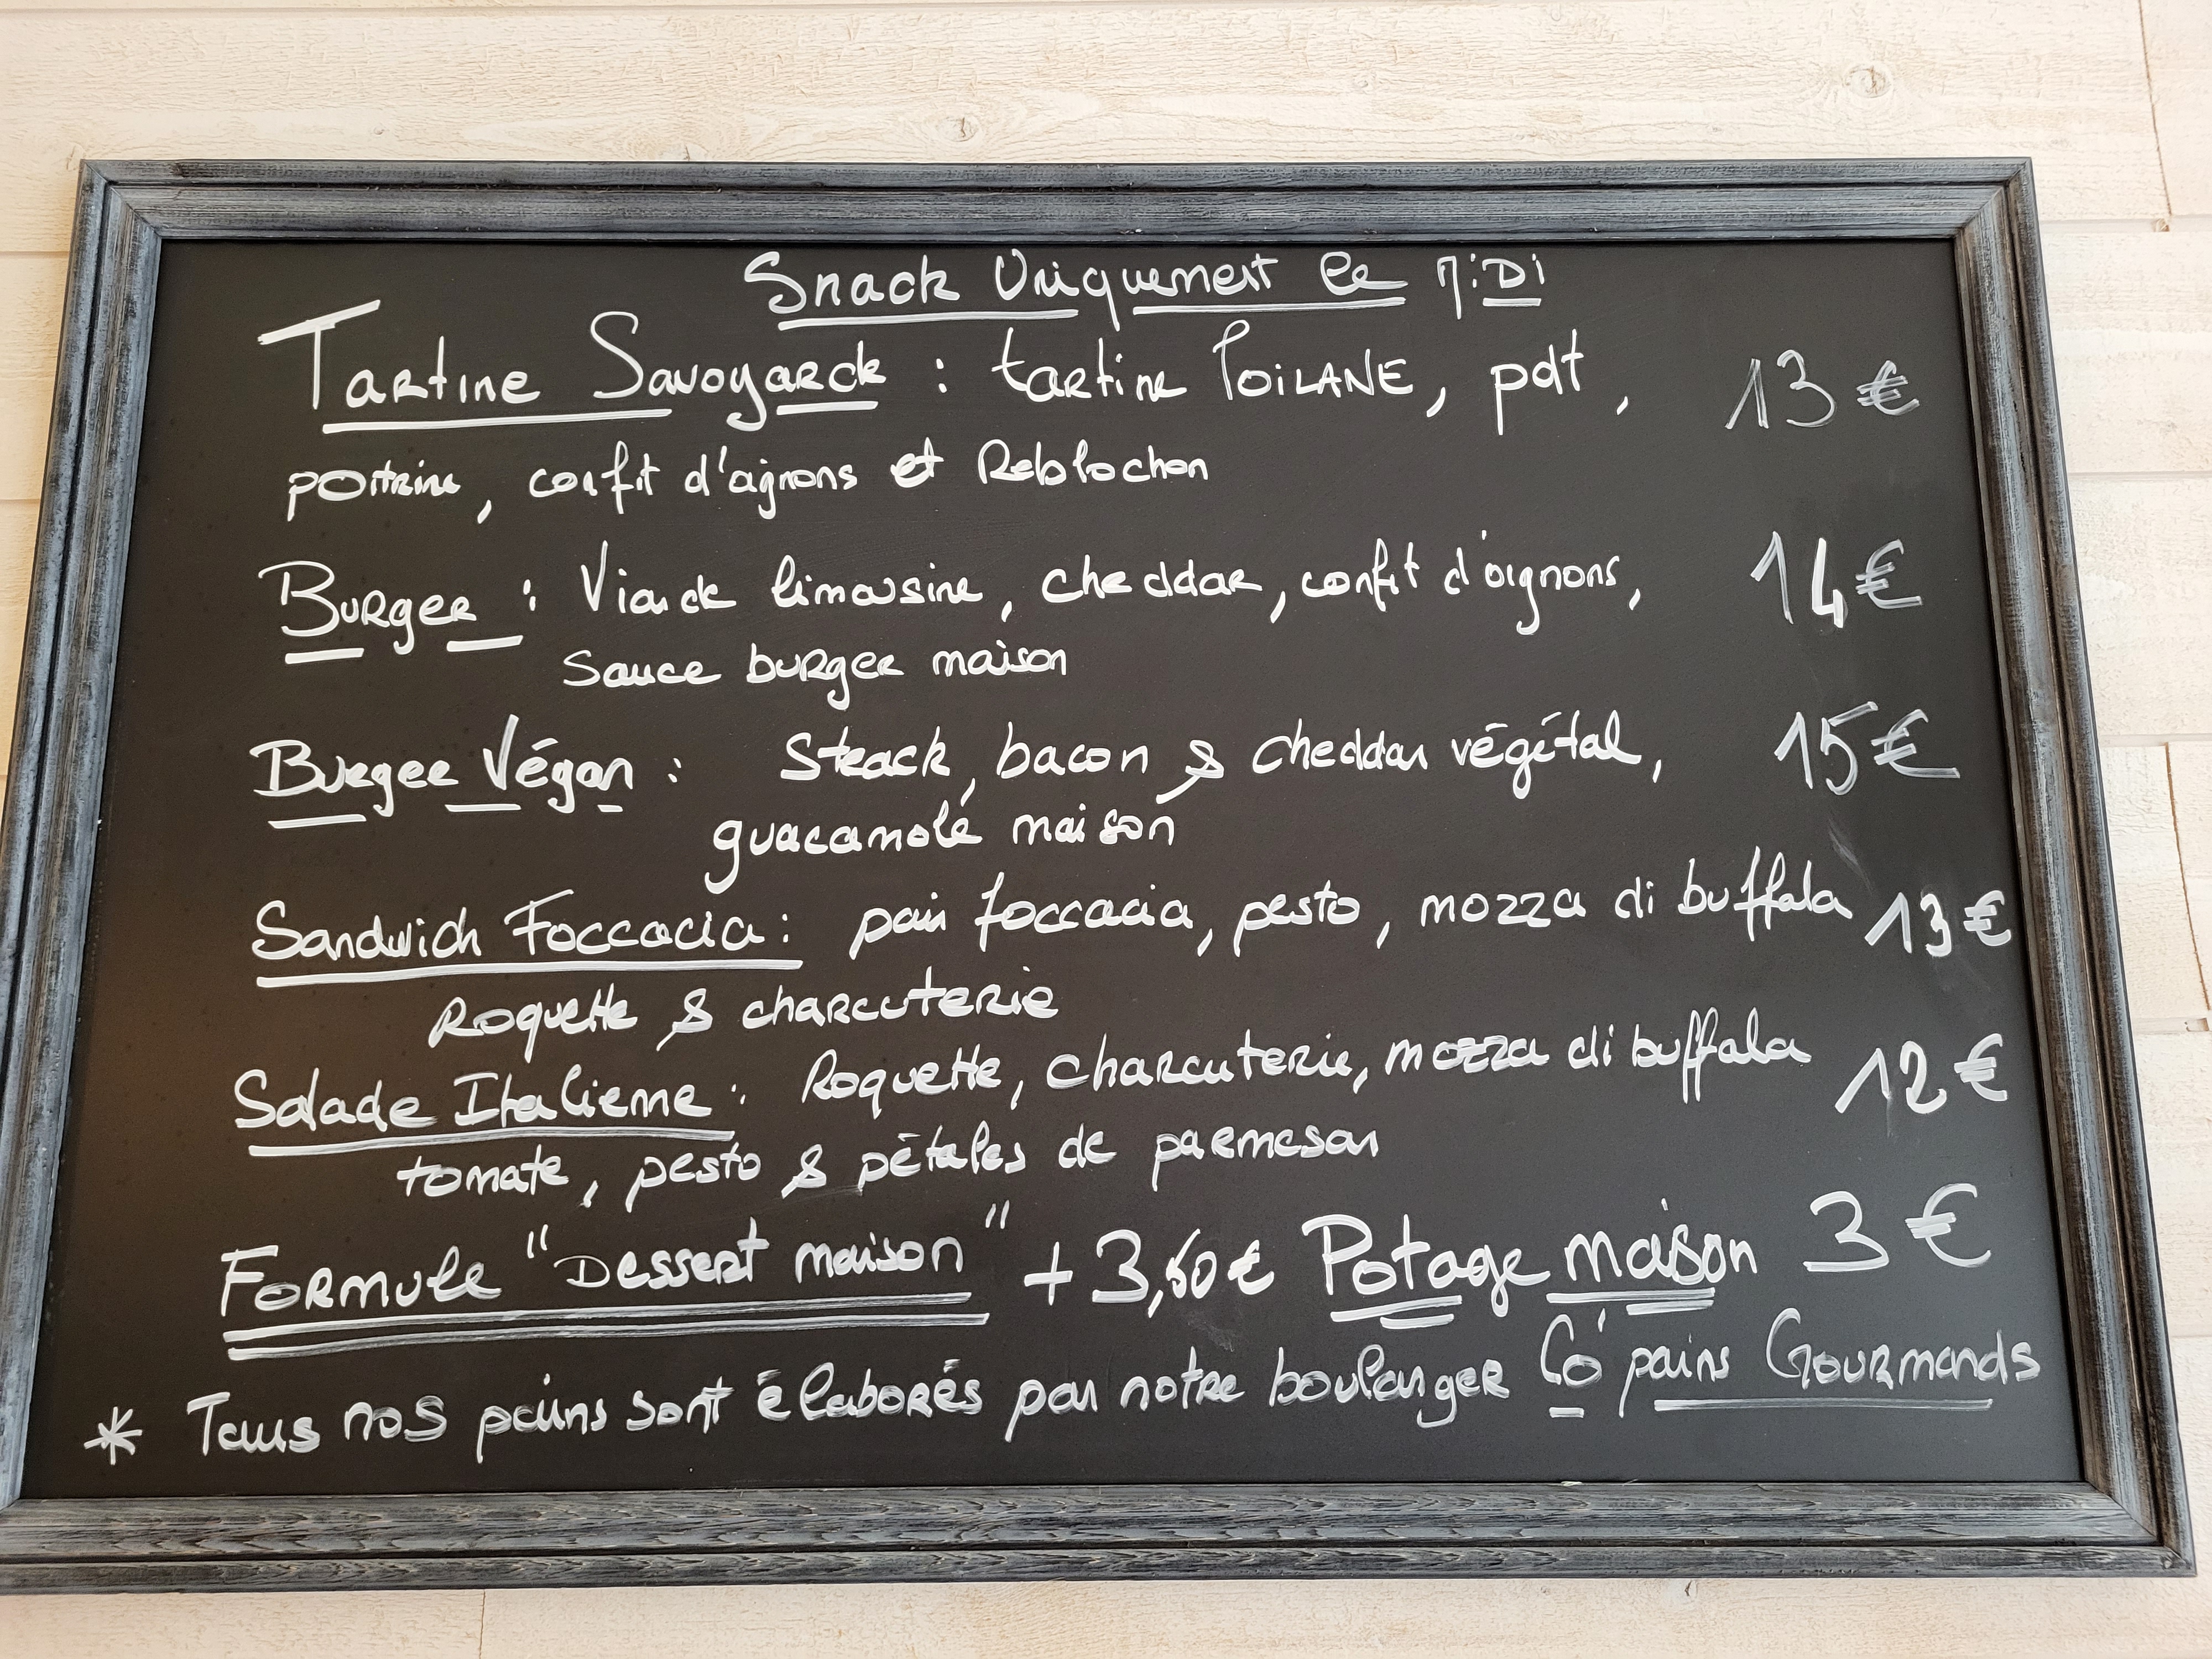 Snack Uniquement le MiDi
Tartine Savoyarde : tartine POiLANE, pdt, 13 €
poitrine, confit d'oignons et Reblochon
Burger : Viande limousine, cheddar, confit d'oignons, 14 €
Sauce burger maison
Burger Végan : Steack, bacon & cheddar végétal, 15 €
guacamolé maison
Sandwich Foccacia : pain foccacia, pesto, mozza di buffala 13 €
Roquette & charcuterie
Salade Italienne : Roquette, charcuterie, mozza di buffala 12 €
tomate, pesto & pétales de parmesan
Formule "Dessert maison" + 3,60 € Potage maison 3 €
* Tous nos pains sont élaborés par notre boulanger Co' pains Gourmands